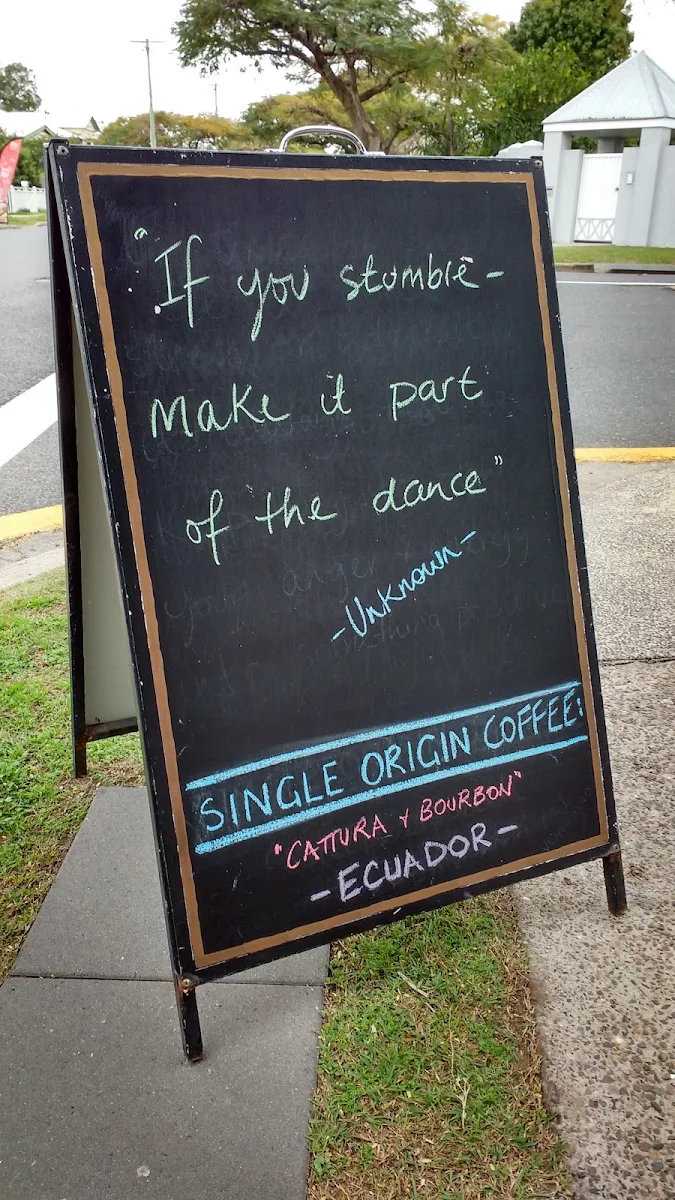 "If you stumble -
Make it part
of the dance"
- Unknown -
SINGLE ORIGIN COFFEE:
"CATTURA Y BOURBON"
- ECUADOR -